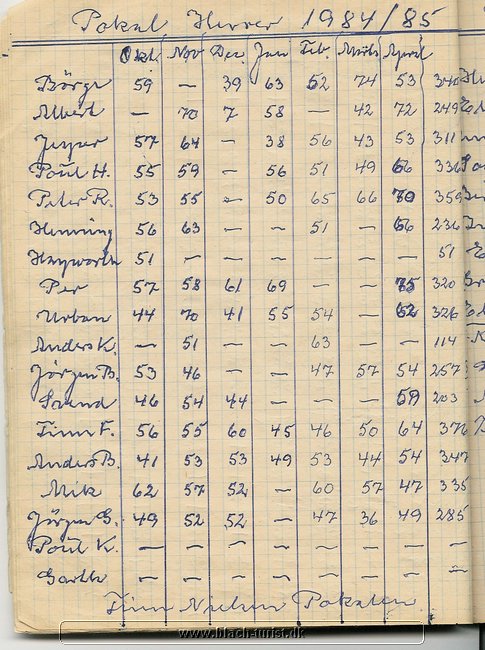 Pokal Herrer 1984/85
Okt. Nov Dec. Jan Feb. Marts April
Börge 59 – 39 63 52 74 53 340
Albert – 70 7 58 – 42 72 249
Jesper 57 64 – 38 56 43 53 311
Poul H. 55 59 – 56 51 49 66 336
Peter R. 53 55 – 50 65 66 70 359
Henning 56 63 – – 51 – 66 236
Hayworth 51 – – – – – – 51
Per 57 58 61 69 – – 75 320
Urban 44 70 41 55 54 – 62 326
Anders K. – 51 – – 63 – – 114
Jörgen B. 53 46 – – 47 57 54 257
Saund 46 54 44 – – – 59 203
Finn F. 56 55 60 45 46 50 64 376
Anders B. 41 53 53 49 53 44 54 347
Mik 62 57 52 – 60 57 47 335
Jörgen G. 49 52 52 – 47 36 49 285
Poul K. – – – – – – – –
– – – – – – – –
Finn Nielsen Pokalen
www.blach-turist.dk